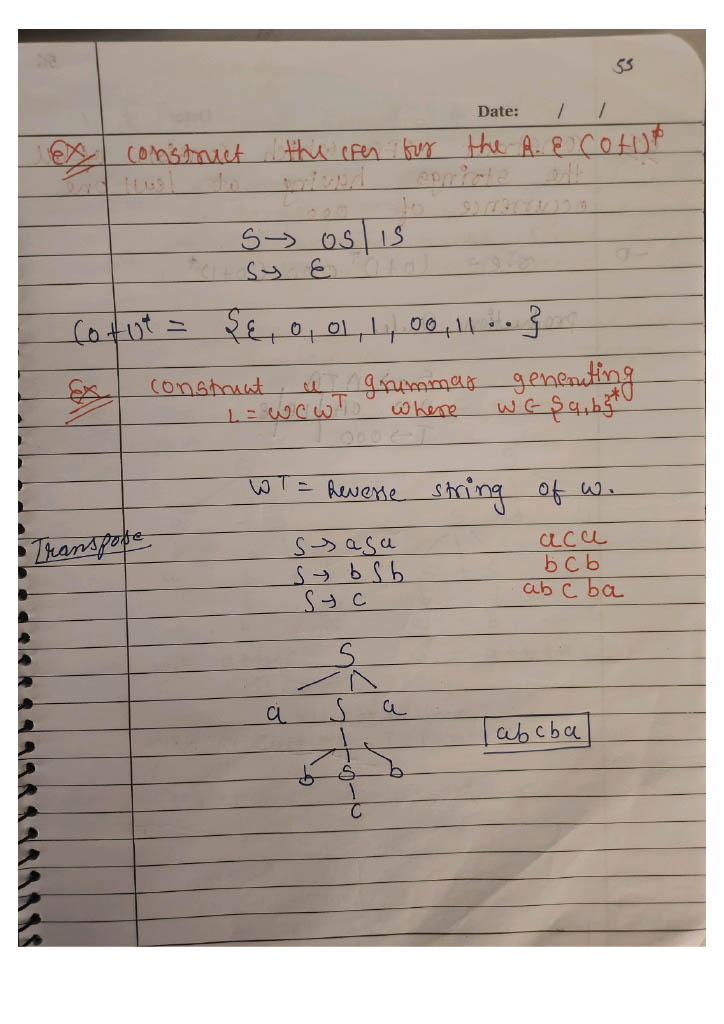 55
Date: / /
Ex construct the CFG for the R.E (0+1)*
S → 0S | 1S
S → ε
(0+1)* = {ε, 0, 01, 1, 00, 11 ... }
Ex construct a grammar generating
L = WCW^T where W ∈ {a,b}*
W^T = Reverse string of w.
Transpose
S → aSa aca
S → bSb bcb
S → c abcba
S
a S a
abcba
b S b
c